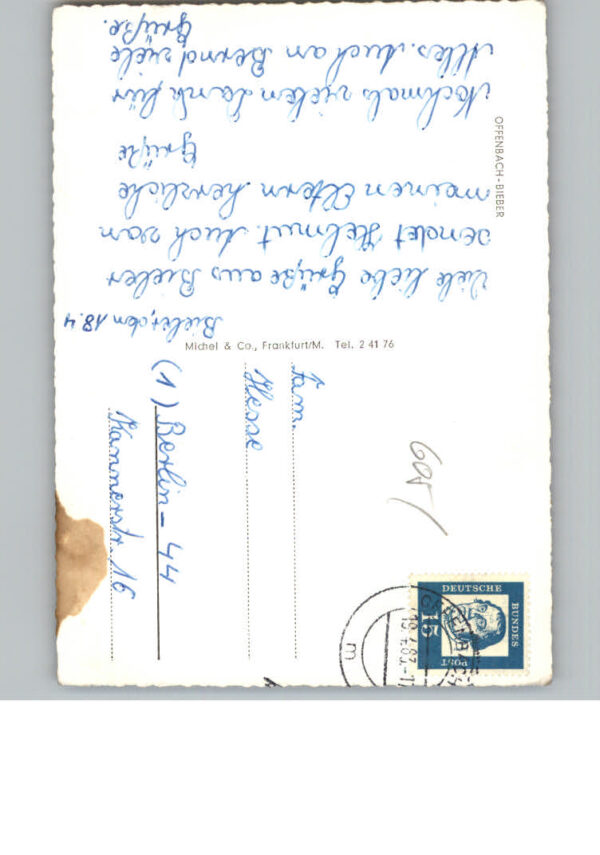 Bieber, den 18.4
Viele liebe Grüße aus Bieber
sendet Helmut. Auch von
meinen Eltern herzliche
Grüße
Nochmals vielen Dank für
Alles. Auch an Bernd viele
Grüße.
OFFENBACH-BIEBER
Michel & Co., Frankfurt/M. Tel. 2 41 76
Fam.
Hesse
(1) Berlin-44
Kannerstr. 16
605/
DEUTSCHE
BUNDES
POST
15
m